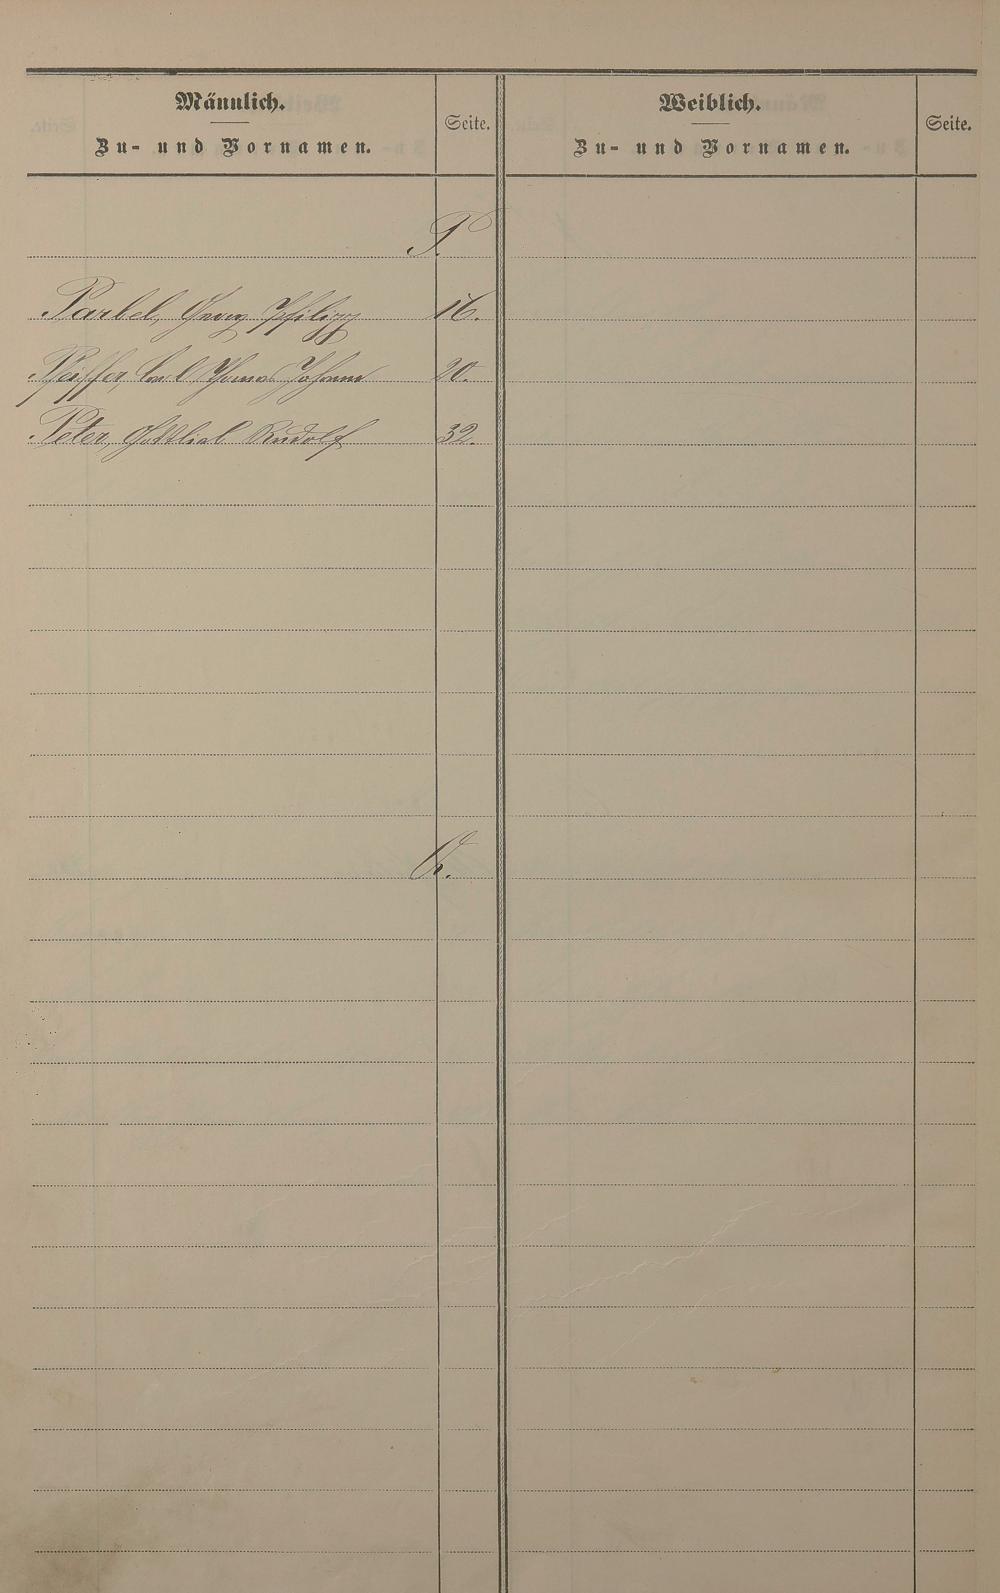 Männlich.
Zu- und Vornamen.
Seite.
Weiblich.
Zu- und Vornamen.
Seite.
P.
Parbel, Georg Philipp 16.
Pfeiffer, Carl Johann 20.
Peter, Gottlieb Rudolf 32.
Q.